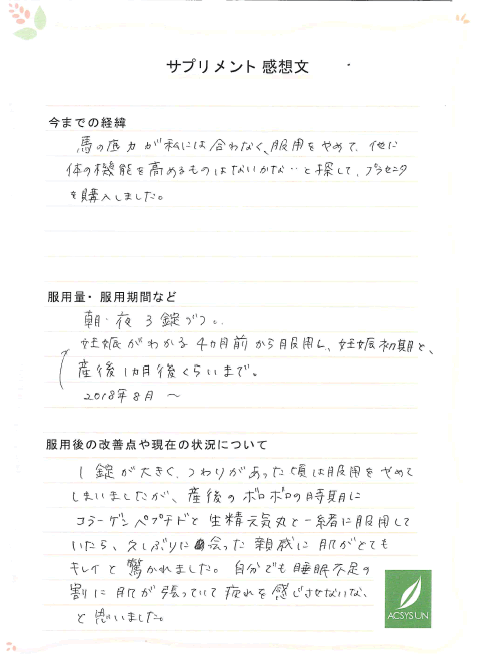 サプリメント 感想文
今までの経緯
馬の底力が私には合わなく、服用をやめて、他に
体の機能を高めるものはないかな‥と探して、プラセンタ
を購入しました。
服用量・服用期間など
朝・夜 3錠づつ。
妊娠がわかる4カ月前から服用し、妊娠初期と、
産後1カ月後くらいまで。
2018年8月 〜
服用後の改善点や現在の状況について
1錠が大きく、つわりがあった頃は服用をやめて
しまいましたが、産後のボロボロの時期に
コラーゲンペプチドと生精元気丸と一緒に服用して
いたら、久しぶりに会った親戚に肌がとても
キレイと驚かれました。自分でも睡眠不足の
割に肌が張っていて疲れを感じさせないな、
と思いました。
ACSYSUN